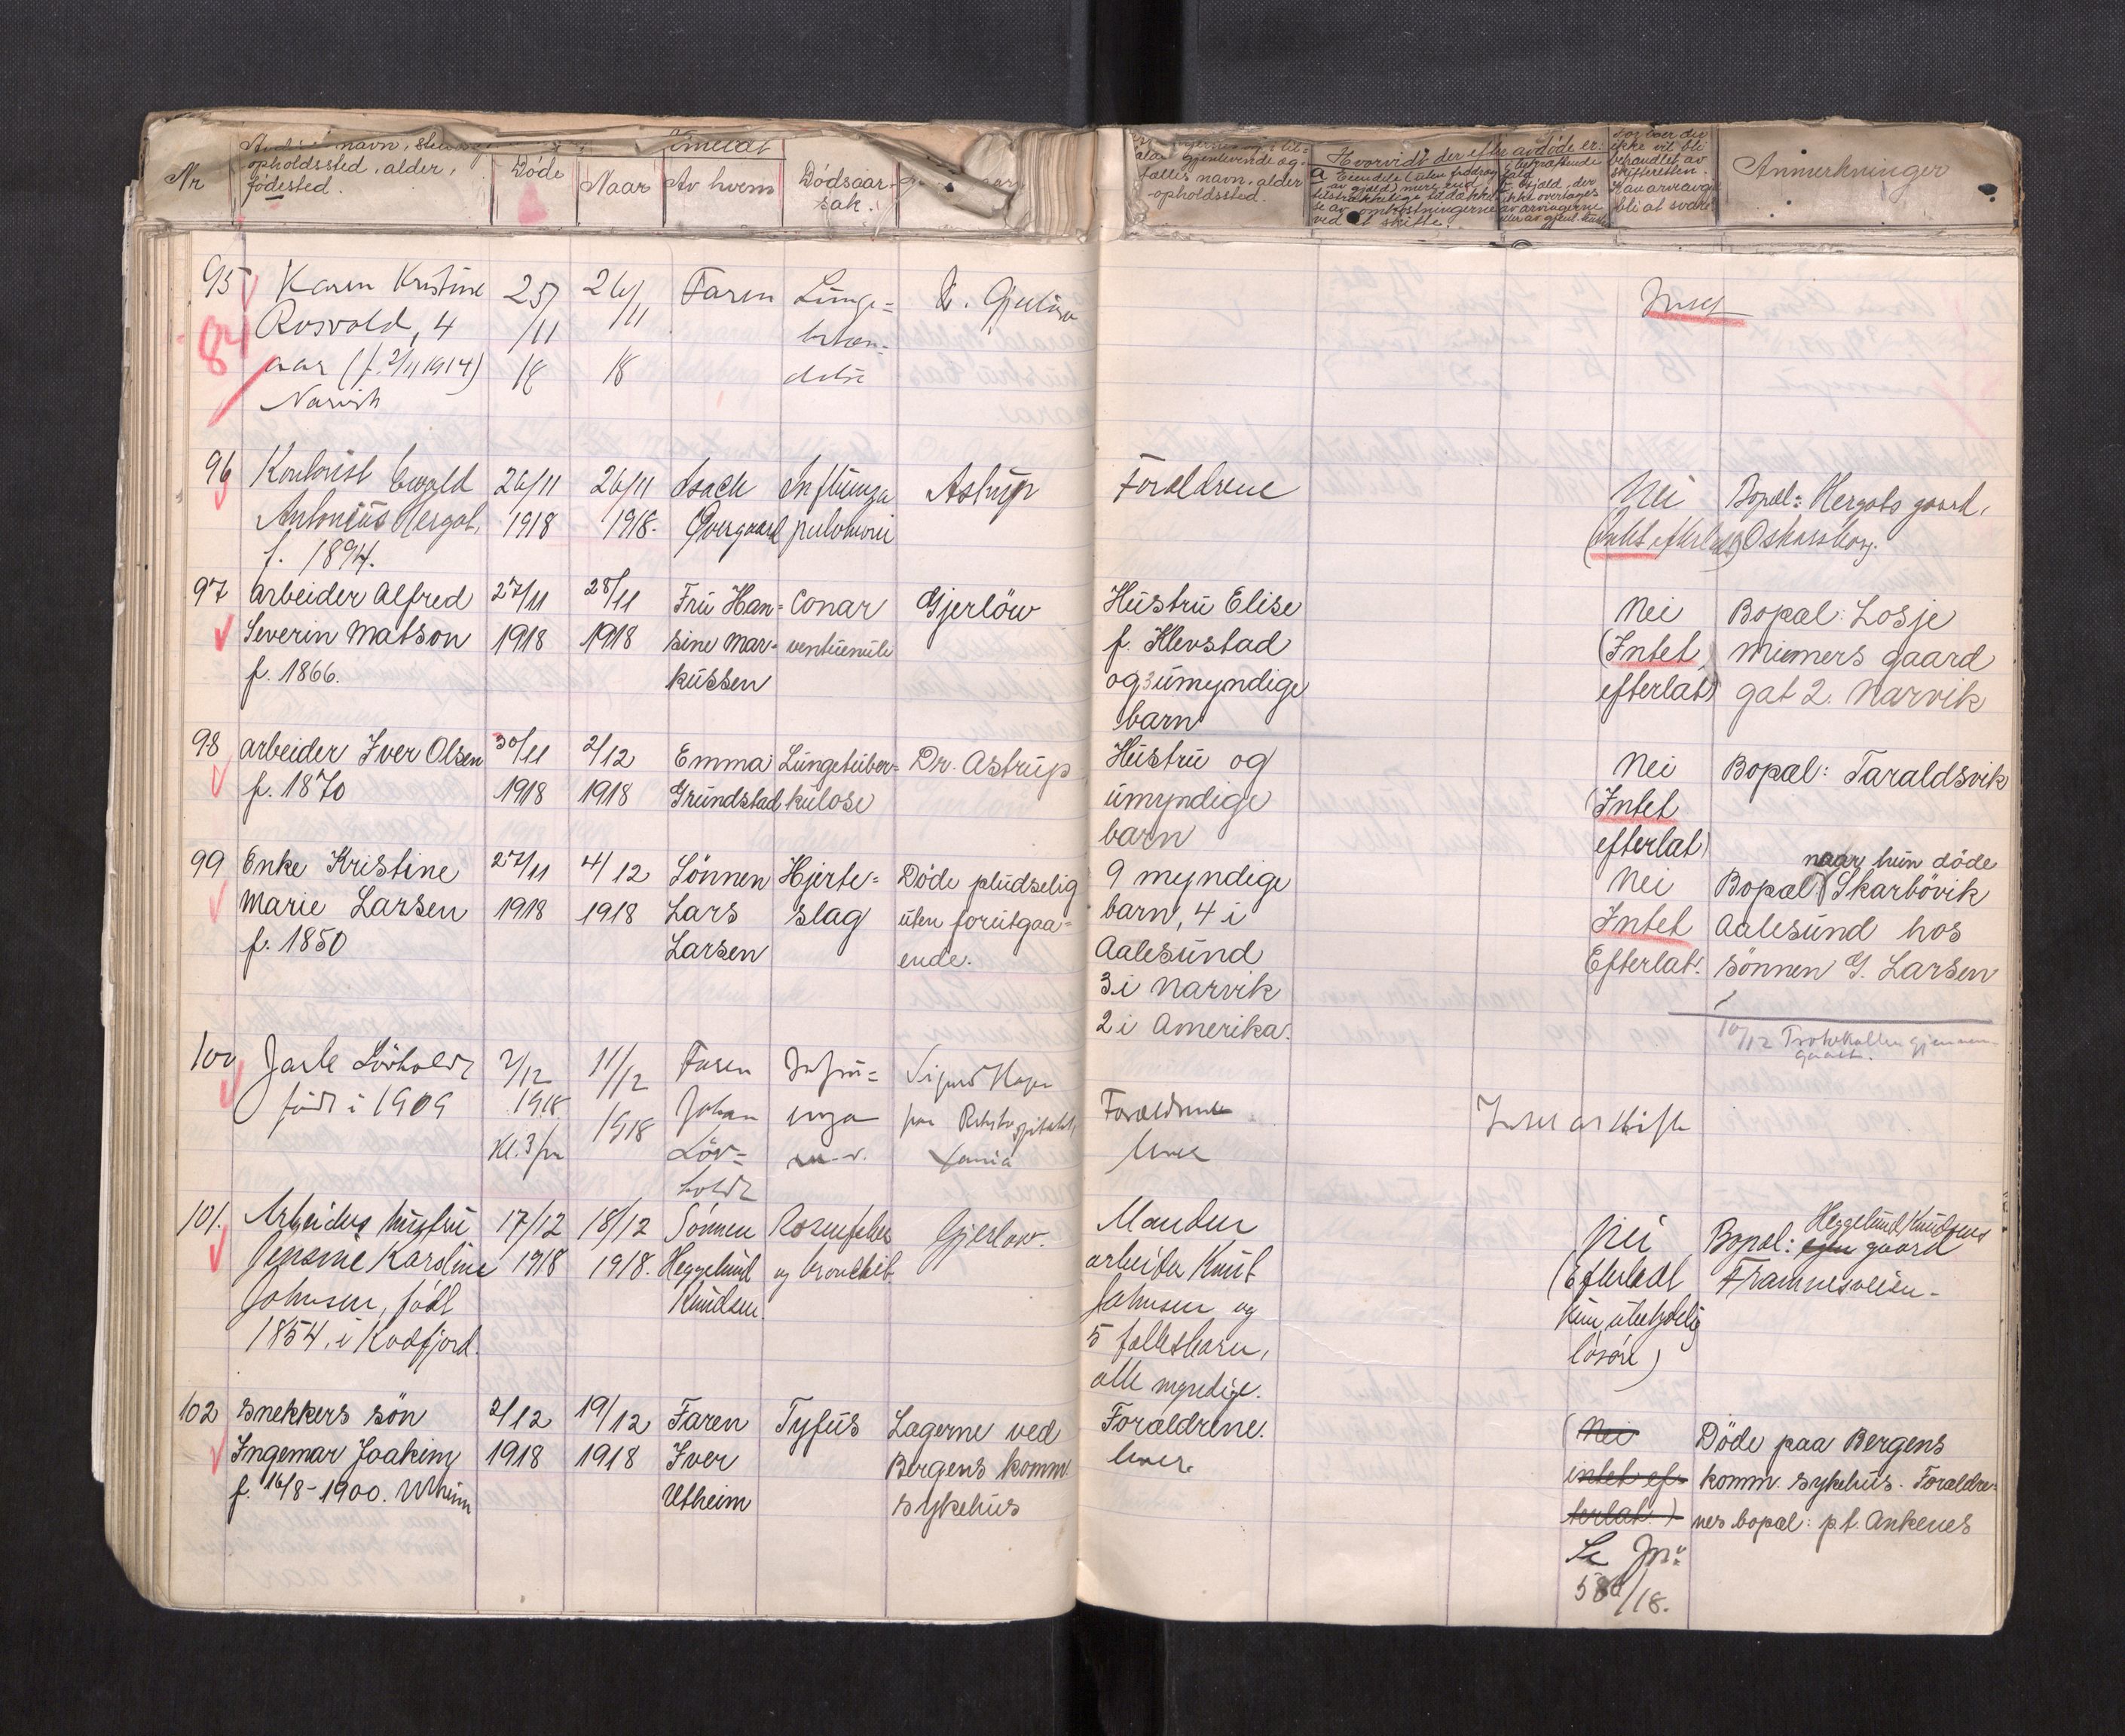 Nr
navn,
opholdssted, alder,
fødested.
Døde
Naar
Av hvem
Dødsaar-
sak.
gjenlevende og
fælles navn, alder
opholdssted.
Hvorvidt der efter avdøde er:
ved et skifte.
ikke vil bli
behandlet av
skifteretten.
Anmerkninger
95
Karen Kristine
Rosvold, 4
aar (f. 2/11 1914)
Narvik
84
25/
/11
18
26/
/11
18
Faren
Lunge-
betæn-
delse
Intet
96
Kontorist Ewald
Antonius Hergot,
f. 1894.
26/11
1918
26/11
1918.
Isack
Overgaard
Influenza
Astrup
Forældrene
Nei
(Intet efterlatt)
Bopæl: Hergots gaard,
Oskarsborg.
97
Arbeider Alfred
Severin Matson
f. 1866.
27/11
1918
28/11
1918
Fru Han-
sine Mar-
kussen
Gjerløw
Hustru Elise
f. Klevstad
og 3 umyndige
barn
Nei
(Intet
efterlat)
Bopæl: Losje
Miemers gaard
gat 2. Narvik
98
Arbeider Iver Olsen
f. 1870
30/11
1918
2/12
1918
Emma
Grundstad
Lungetuber-
kulose
Dr. Astrup
Hustru og
umyndige
barn
Nei
(Intet
efterlat)
Bopæl: Taraldsvik
99
Enke Kristine
Marie Larsen
f. 1850
27/11
1918
4/12
1918
Sønnen
Lars
Larsen
Hjerte-
slag
Døde pludselig
uten forutgaa-
ende.
9 myndige
barn, 4 i
Aalesund
3 i Narvik
2 i Amerika.
Nei
Intet
Efterlat.
naar hun døde
Bopæl Skarbøvik
Aalesund hos
sønnen G. Larsen
10/12 Protokollen gjennem-
gaaet.
100
Jarle Løvholdt
født i 1909
2/12
1918
Kl. 3 fm
11/12
1918
Faren
Johan
Løv-
holdt
Influ-
enza
Forældrene
lever
101.
Arbeiders hustru
Jensine Karoline
Johnsen, født
1854, i Kodfjord.
17/12
1918
18/12
1918.
Sønnen
Heggelund
Knudsen.
Rosenfeber
og bronchit
Gjerløw.
Manden
arbeider Knut
Johnsen og
5 fællesbarn,
alle myndige.
Nei
(Efterladt
kun ubetydelig
løsøre)
Heggelund Knudsens
Bopæl: egen gaard
Framnesveien-
102
Snekkers søn
Ingemar Joakim
f. 16/8-1900. Utheim
2/12
1918
19/12
1918
Faren
Iver
Utheim
Tyfus
Lægerne ved
Bergens komm.
sykehus
Forældrene.
lever.
(Nei
intet ef-
terlat.)
Se Jnr.
586/18.
Døde paa Bergens
komm. sykehus. Forældre-
nes bopæl: p.t. Ankenes